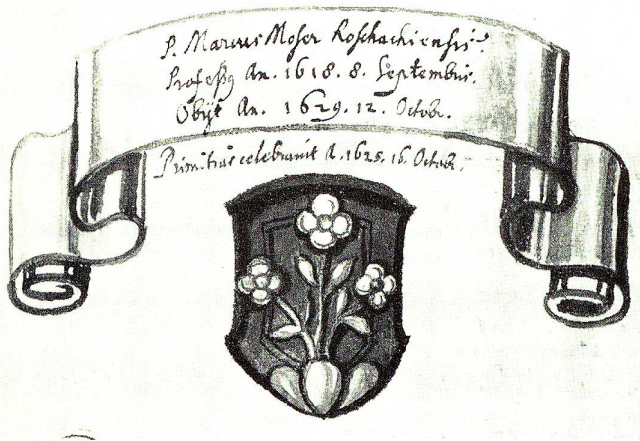 P. Marcus Moser Roschachiensis.
Professq An. 1618. 8. Septembris.
Obijt An. 1629. 12. Octob.
Primitias celebravit A. 1625. 16. Octob.